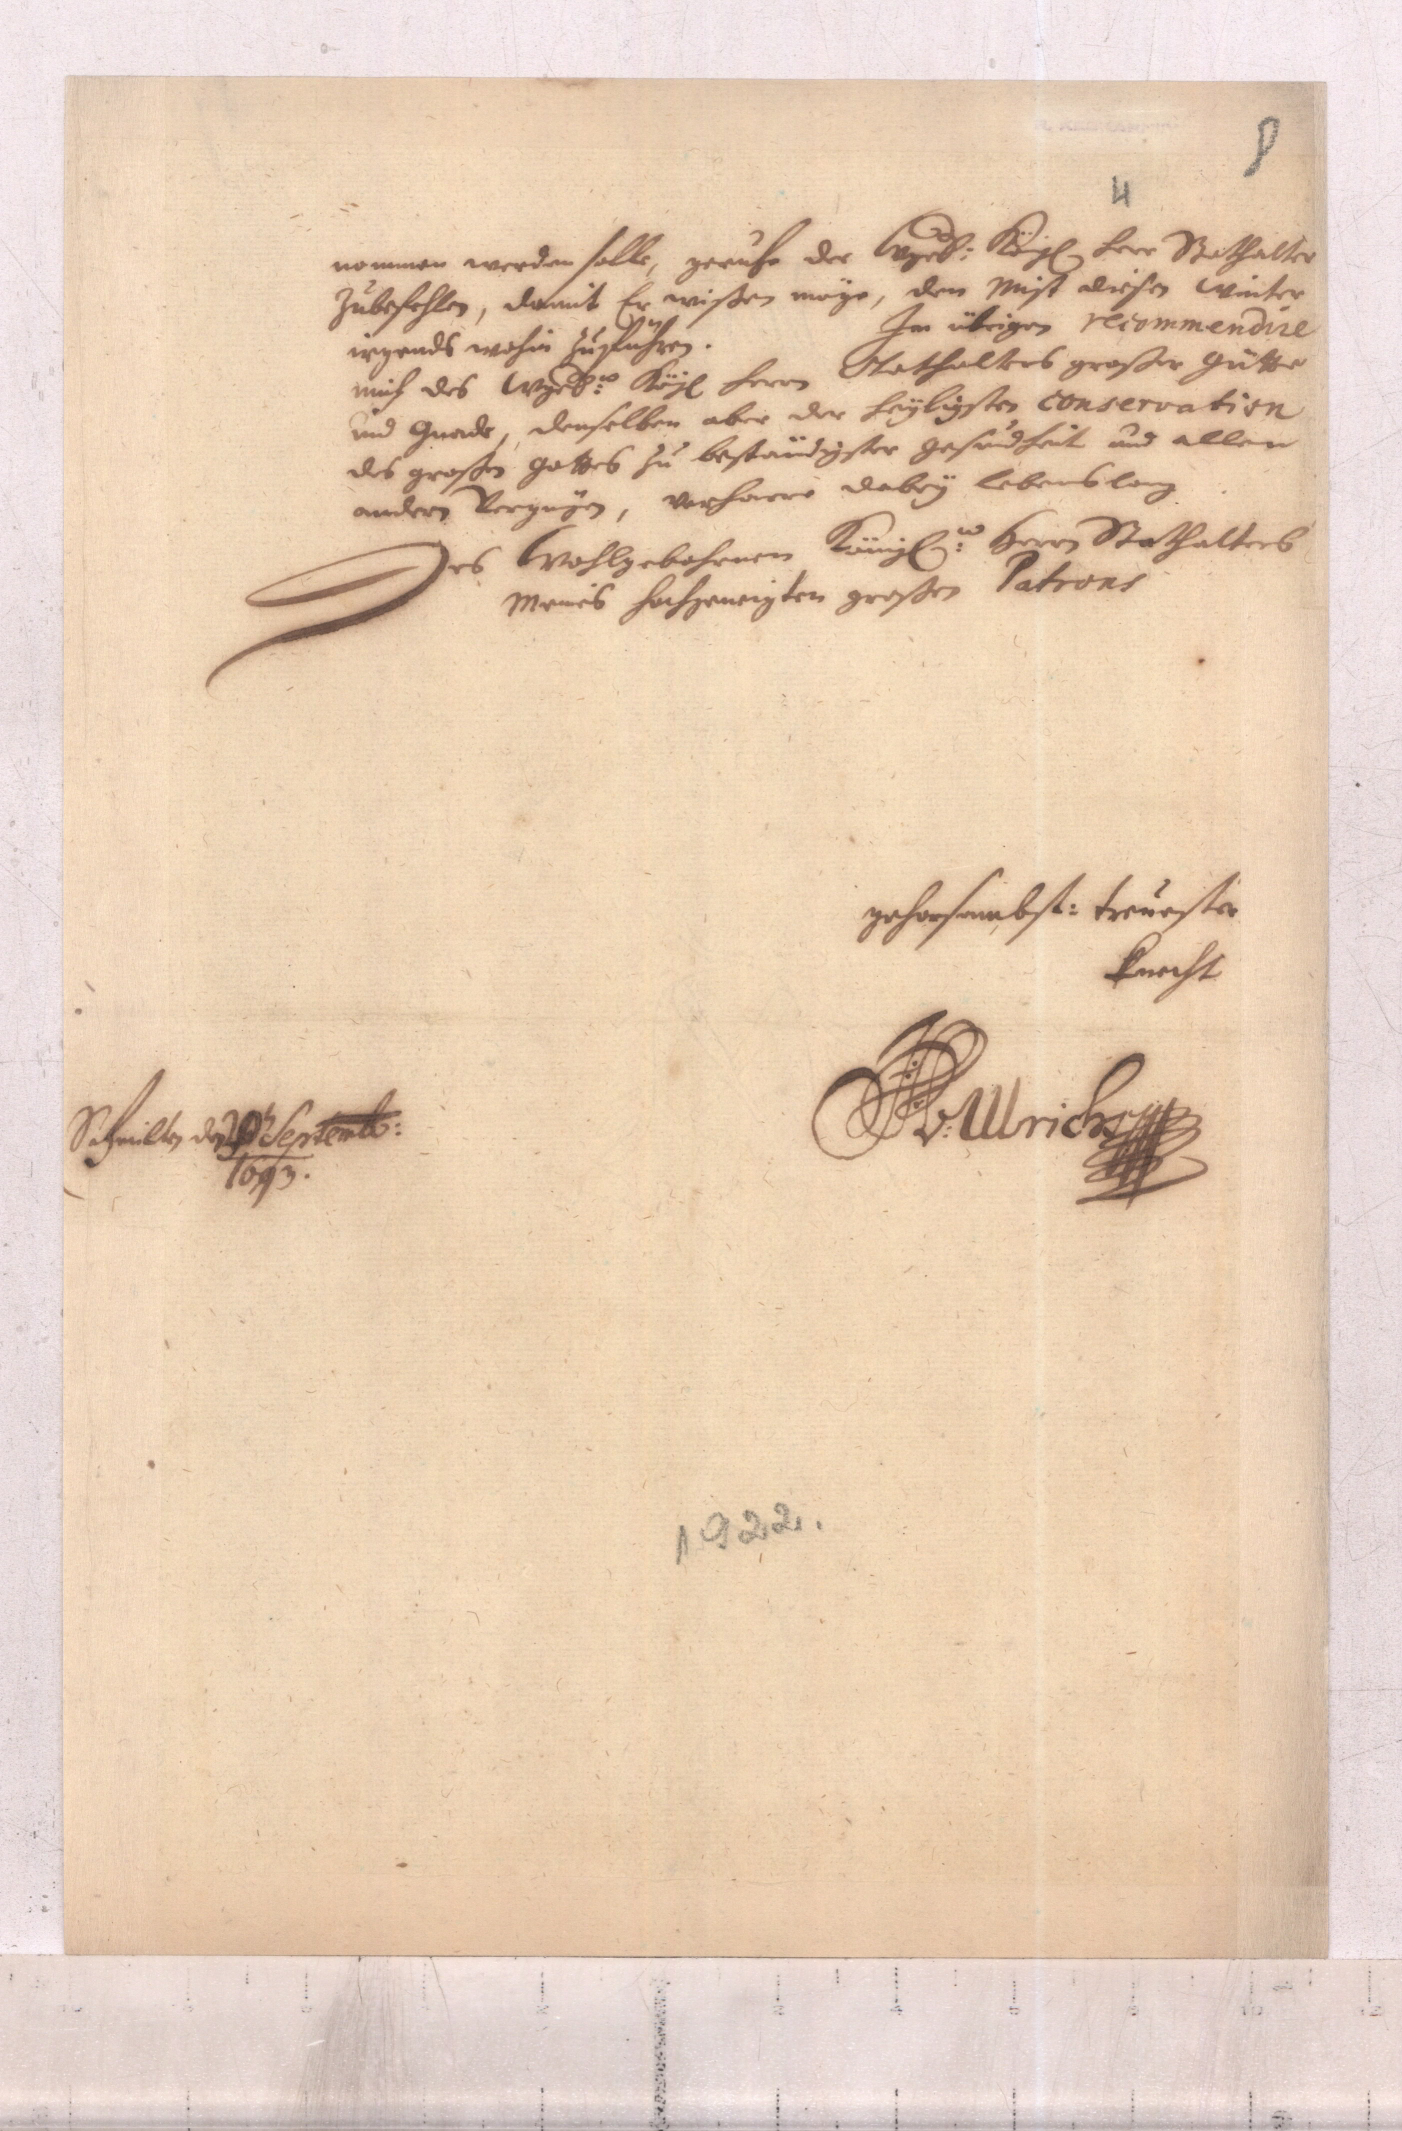 8
4
nommen werden solle, geruhe der Wgeb: Königl Herr Stathalter
zubefehlen, damit Er wißen möge, den Mist diesen Winter
irgends wohin zuführen. Im übrigen recommendire
mich des Wgeb: Kögl Herrn Stathalters großer Gütte
und Gnade, denselben aber der heyligsten conservation
des großen Gottes zu beständigster gesundheit und allem
andern Vergnügen, verharre dabey lebenslang
Des Wohlgebohrnen Königl: Herrn Stathalters
Meines hochgeneigten großen Patrons
gehorsambst: treuester
Knecht
v: Ulrich
den Septemb:
1693.
1922.